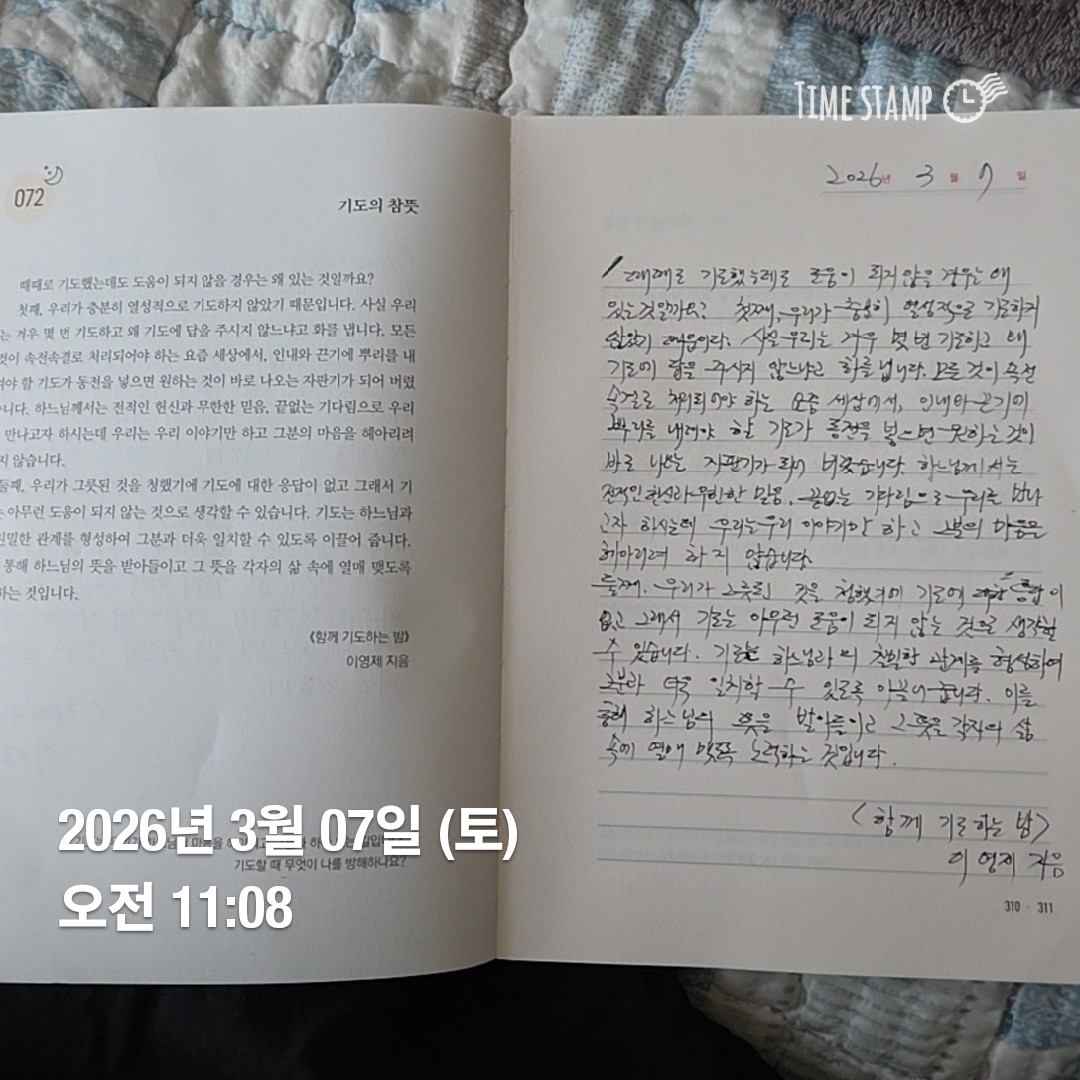 TIME STAMP
072
기도의 참뜻
때때로 기도했는데도 도움이 되지 않을 경우는 왜 있는 것일까요?
첫째, 우리가 충분히 열성적으로 기도하지 않았기 때문입니다. 사실 우리
는 겨우 몇 번 기도하고 왜 기도에 답을 주시지 않느냐고 화를 냅니다. 모든
것이 속전속결로 처리되어야 하는 요즘 세상에서, 인내와 끈기에 뿌리를 내
려야 할 기도가 동전을 넣으면 원하는 것이 바로 나오는 자판기가 되어 버렸
습니다. 하느님께서는 전적인 헌신과 무한한 믿음, 끝없는 기다림으로 우리
만나고자 하시는데 우리는 우리 이야기만 하고 그분의 마음을 헤아리려
지 않습니다.
둘째, 우리가 그릇된 것을 청했기에 기도에 대한 응답이 없고 그래서 기
는 아무런 도움이 되지 않는 것으로 생각할 수 있습니다. 기도는 하느님과
친밀한 관계를 형성하여 그분과 더욱 일치할 수 있도록 이끌어 줍니다.
통해 하느님의 뜻을 받아들이고 그 뜻을 각자의 삶 속에 열매 맺도록
하는 것입니다.
《함께 기도하는 밤》
이영제 지음
기도할 때 무엇이 나를 방해하나요?
2026년 3월 07일 (토)
오전 11:08
2026년 3월 7일
때때로 기도했는데도 도움이 되지 않을 경우는 왜
있는 것일까요? 첫째, 우리가 충분히 열성적으로 기도하지
않았기 때문이다. 사실 우리는 겨우 몇 번 기도하고 왜
기도에 답을 주시지 않느냐고 화를 냅니다. 모든 것이 속전
속결로 처리되어야 하는 요즘 세상에서, 인내와 끈기에
뿌리를 내려야 할 기도가 동전을 넣으면 원하는 것이
바로 나오는 자판기가 되어 버렸습니다. 하느님께서는
전적인 헌신과 무한한 믿음, 끝없는 기다림으로 우리를 만나
고자 하시는데 우리는 우리 이야기만 하고 그분의 마음은
헤아리려 하지 않습니다.
둘째. 우리가 그릇된 것을 청했기에 기도에 대한 응답이
없고 그래서 기도는 아무런 도움이 되지 않는 것으로 생각할
수 있습니다. 기도는 하느님과의 친밀한 관계를 형성하여
그분과 더욱 일치할 수 있도록 이끌어 줍니다. 이를
통해 하느님의 뜻을 받아들이고 그 뜻을 각자의 삶
속에 열매 맺도록 노력하는 것입니다.
<함께 기도하는 밤>
이영제 지음
310 · 311